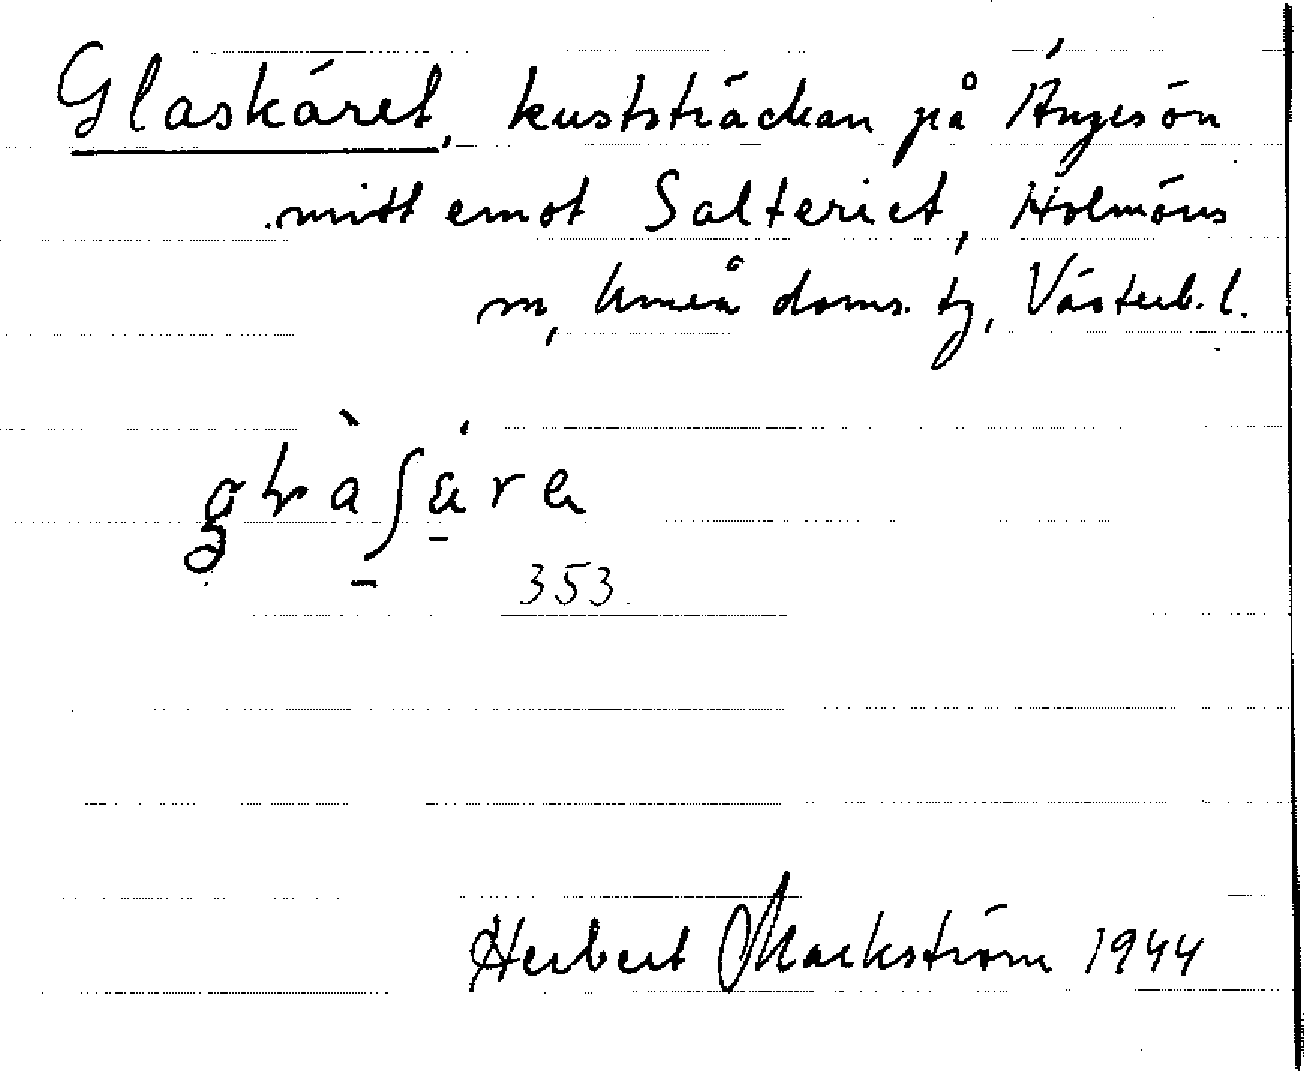 Glaskäret, kuststräckan på Ängesön
mitt emot Salteriet, Holmöns
sn, Umeå doms. tg, Västerb. l.
353
Herbert Markström 1944